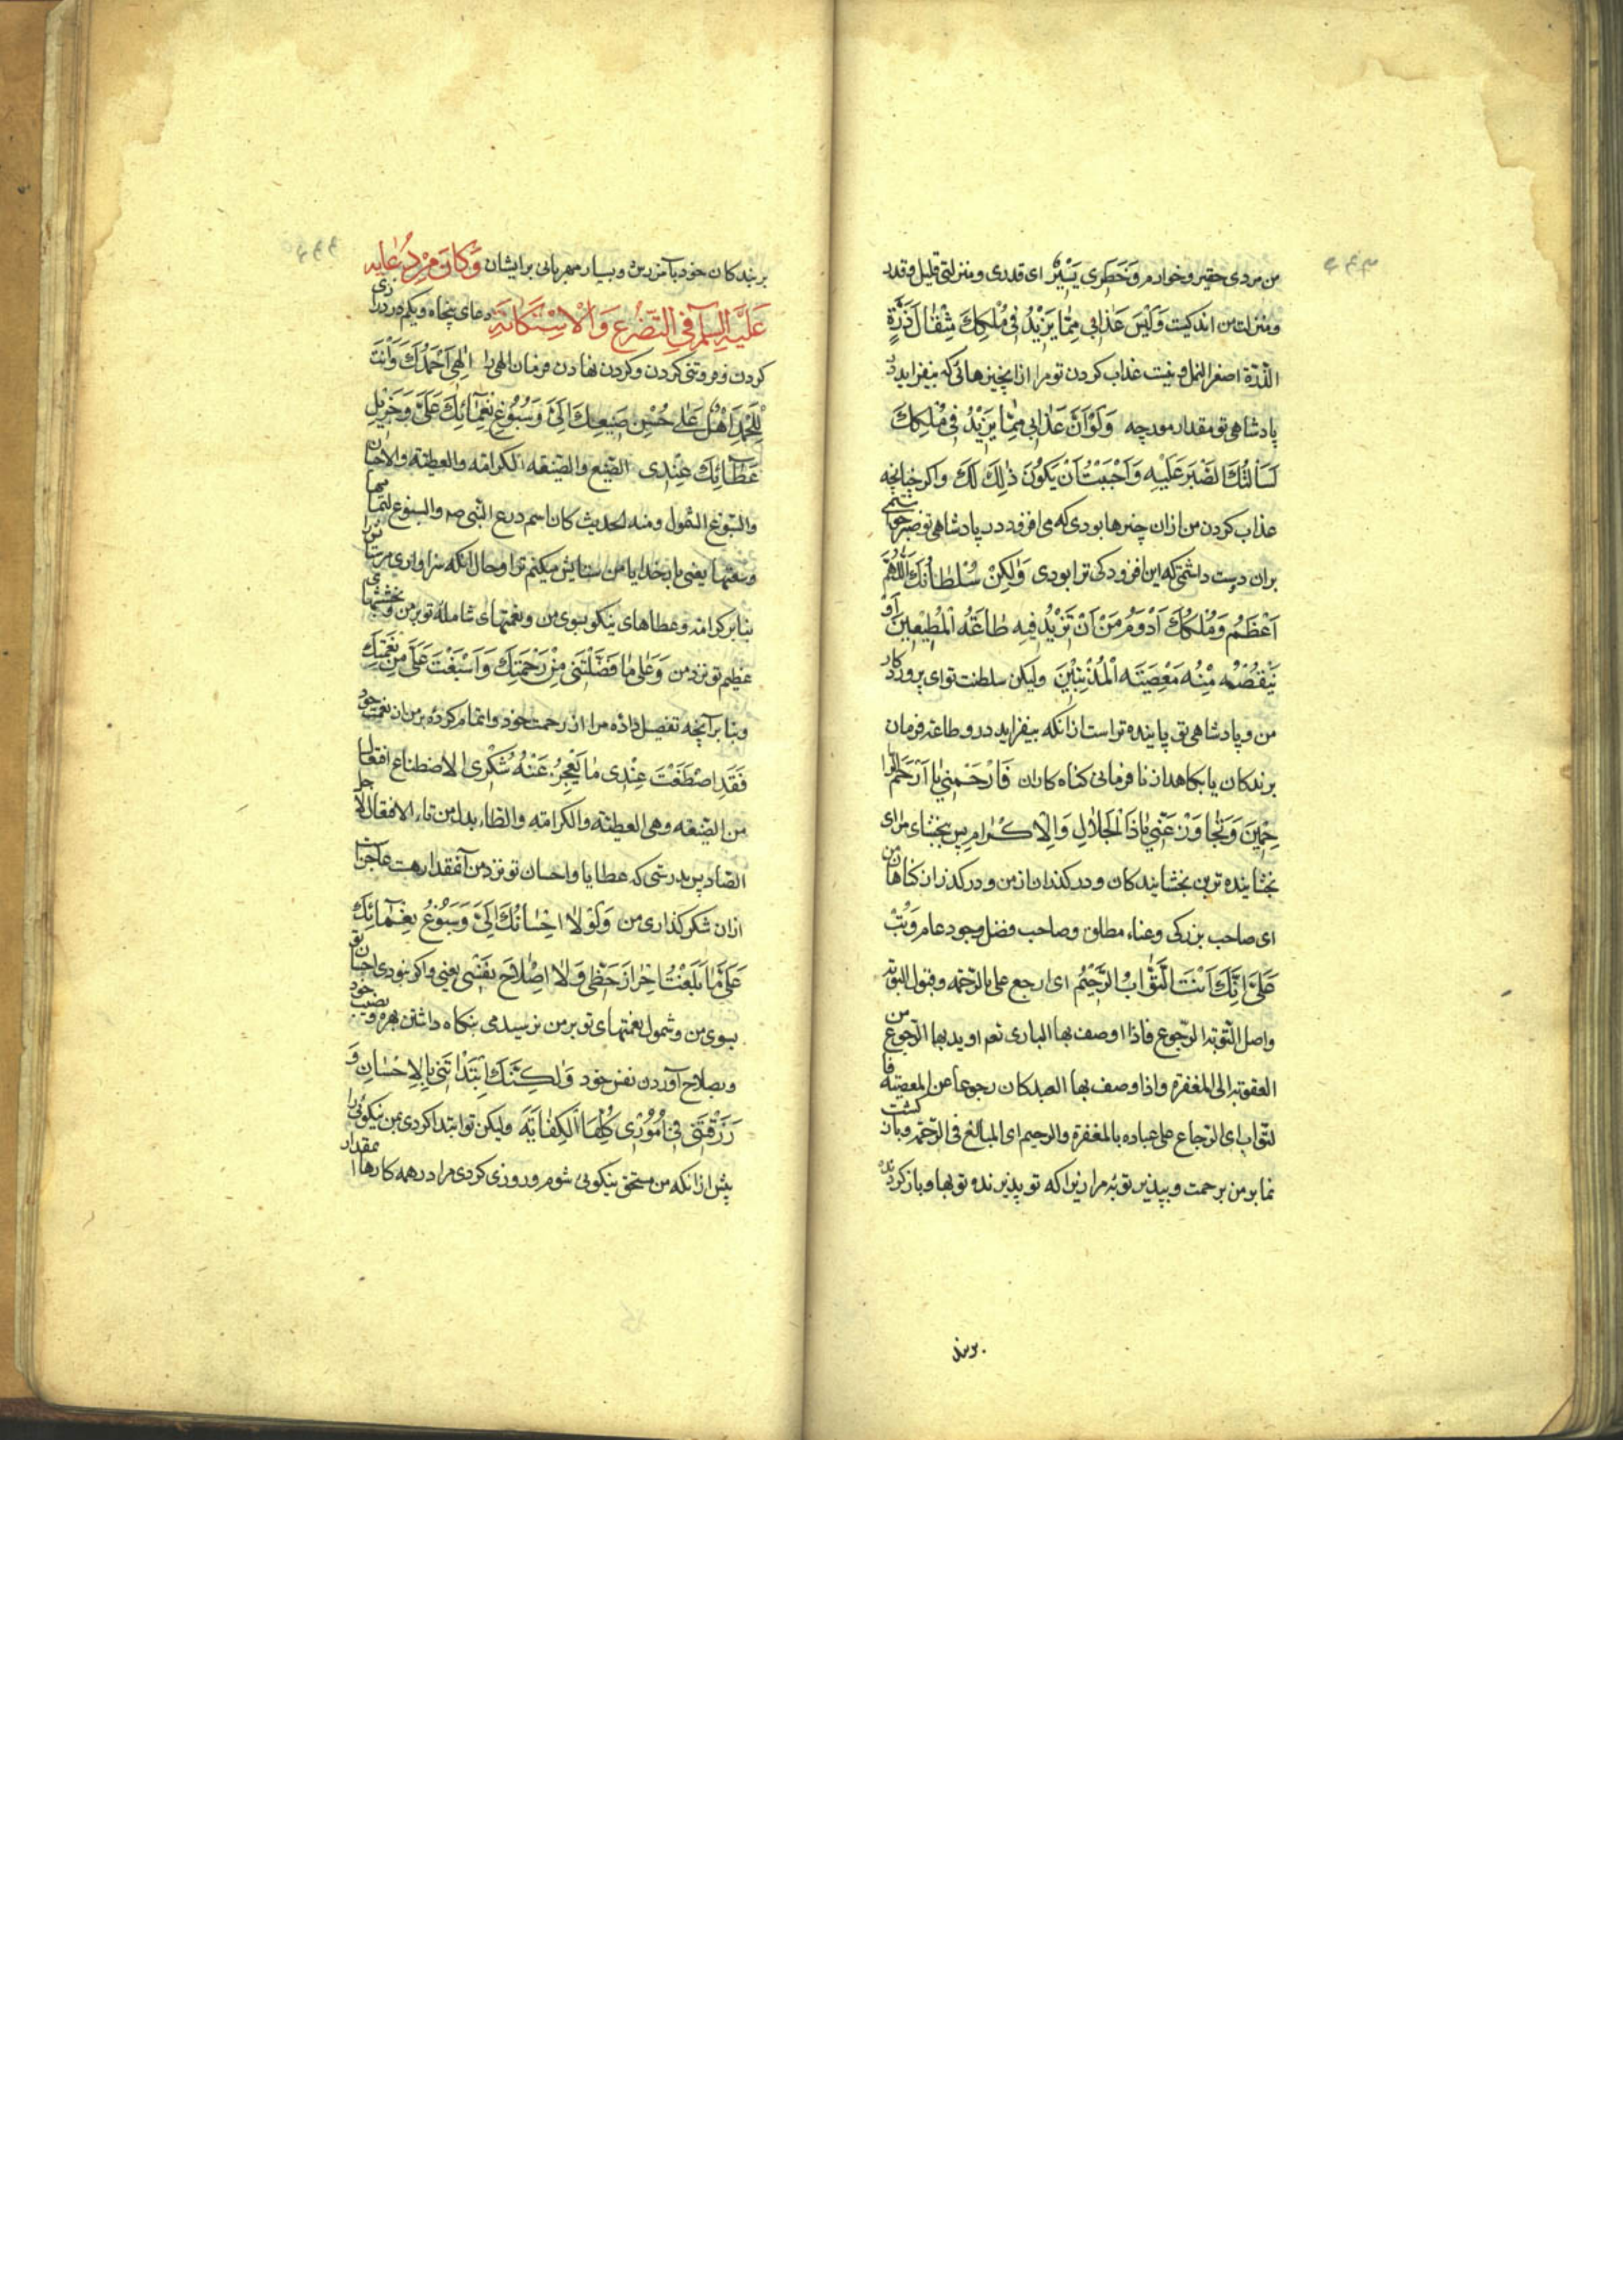 من مردی حقیر و خوارم وَخَطَرِي يَسِيْرٌ ای قدری و منزلتی قلیل و قدر
و منزلت من اندکیست وَلَيْسَ عَذَابِي مِمَّا يَزِيْدُ فِي مُلْكِكَ مِثْقَالَ ذَرَّةٍ
الذّرّة اصغر النمل و نیست عذاب کردن تو مرا از انچیزهائی که بیفزاید در
پادشاهی تو مقدار مورچه وَلَوْ اَنَّ عَذَابِي مِمَّا يَزِيْدُ فِي مُلْكِكَ
لَسَاَلْتُكَ الصَّبْرَ عَلَيْهِ وَاَحْبَبْتُ اَنْ يَكُوْنَ ذٰلِكَ لَكَ واکر چنانچه
عذاب کردن من ازان چیزها بودی که می افزود در پادشاهی تو صبر خواستمی
بران دوست داشتمی که این افزودکی ترا بودی وَلٰكِنْ سُلْطَانُكَ اللّٰهُمَّ
اَعْظَمُ وَمُلْكُكَ اَدْوَمُ مِنْ اَنْ تَزِيْدَ فِيهِ طَاعَةُ الْمُطِيْعِيْنَ اَوْ
تَنْقُصُ مِنْهُ مَعْصِيَةُ الْمُذْنِبِيْنَ ولیکن سلطنت تو ای پروردکار
من و پادشاهی تو پاینده تر است ازانکه بیفزاید درو طاعة فرمان
برندکان یا بکاهد از نافرمانی کناه کاران فَارْحَمْنِي يَا اَرْحَمَ الرّا
حِمِيْنَ وَتَجَاوَزْ عَنِّي يَا ذَا الْجَلَالِ وَالْاِكْرَامِ پس ببخشای مرا ای
بخشاینده ترین بخشایندکان و درکذران از من و درکذر از کناهان من
ای صاحب بزرکی و غناء مطلق و صاحب فضل وجود عام وَتُبْ
عَلَيَّ اِنَّكَ اَنْتَ التَّوَّابُ الرَّحِيْمُ ای ارجع علی بالرّحمة و قبول التوبة
واصل التّوبة الرّجوع فاذا اوصف بها الباری تعم ارید بها الرّجوع من
العقوبة الی المغفرة واذا وصف بها العبد کان رجوعا عن المعصیة فا
لتّواب ای الرّجاع علی عباده بالمغفرة والرحیم ای المبالغ فی الرّحمة و بازکشت
نما بر من برحمت و بپذیر توبهٔ مرا زیراکه تو پذیرنده توبها و بازکردنده
بر بندکان خود بآمرزیدن و بسیار مهربانی برایشان وَكَانَ مِنْ دُعَائِهِ
عَلَيْهِ السلم فِي التَّضَرُّعِ وَالْاِسْتِكَانَةِ دعای پنجاه و یکم در زاری
کردن و فروتنی کردن و کردن نهادن فرمان الهی را اِلٰهِي اَحْمَدُكَ وَاَنْتَ
لِلْحَمْدِ اَهْلٌ عَلٰى حُسْنِ صَنِيعِكَ اِلَيَّ وَسُبُوْغِ نَعْمَائِكَ عَلَيَّ وَجَزِيْلِ
عَطَائِكَ عِنْدِي الصّنیع والصّنیعه الکرامة والعطیّة والاحسان
والسّبوغ الشّمول ومنه الحدیث کان اسم درع النّبی ص والسبوغ لتمامها
وسعتها یعنی بار خدایا من ستایش میکنم ترا و حال آنکه سزاواری مر ستایش را
بنابر کرامت و عطاهای نیکو بسوی من و نعمتهای شامله تو بر من و بخششهای
عظیم تو نزد من وَعَلٰى مَا فَضَّلْتَنِي مِنْ رَحْمَتِكَ وَاَسْبَغْتَ عَلَيَّ مِنْ نِعْمَتِكَ
وبنابر آنچه تفضیل داده مرا از رحمت خود و اتمام کرده بر من از نعمت خود
فَقَدِ اصْطَنَعْتَ عِنْدِي مَا يَعْجِزُ عَنْهُ شُكْرِي الاصطناع افتعال
من الصّنیعه وهی العطیّة والکرامة والطّاء بدل من تاء الافتعال لاجل
الصّاد پس بدرستی که عطایا و احسان تو نزد من آنقدار هست عاجز است
ازان شکرکذاری من وَلَوْلَا اِحْسَانُكَ اِلَيَّ وَسُبُوْغُ نَعْمَائِكَ
عَلَيَّ مَا بَلَغْتُ اِحْرَازَ حَظِّي وَلَا اِصْلَاحَ نَفْسِي یعنی واکر نبودی احسان تو
بسوی من و شمول نعمتهای تو بر من نرسیدمی بنکاه داشتن بهره و نصیب خود
و بصلاح آوردن نفس خود وَلٰكِنَّكَ ابْتَدَاْتَنِي بِالْاِحْسَانِ وَ
رَزَقْتَنِي فِي اُمُوْرِي كُلِّهَا الْكِفَايَةَ ولیکن تو ابتدا کردی بمن نیکوئی را
پیش ازانکه من مستحق نیکوئی شوم و روزی کردی مرا در همه کارها مقدار